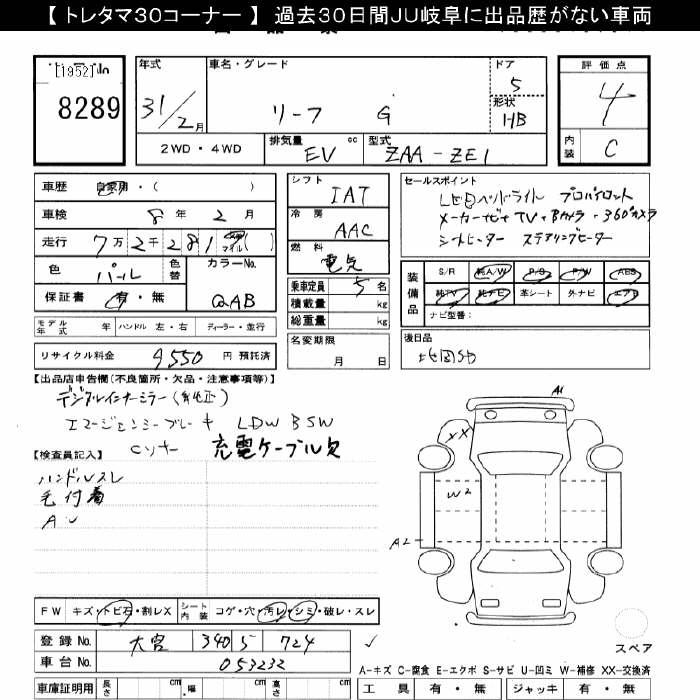 【 トレタマ３０コーナー 】 過去３０日間ＪＵ岐阜に出品歴がない車両
[1952]
8289
年式 31/2月
車名・グレード リーフ G
ドア 5
形状 HB
評価点 4
内装 C
2WD・4WD
排気量 EV cc
型式 ZAA-ZE1
車歴 自家用・( )
車検 8年 2月
走行 7万2千281 マイル ( )
色 パール 色替
カラーNo. QAB
保証書 有・無
シフト IAT
冷房 AAC
燃料 電気
乗車定員 5名
積載量 kg
総重量 kg
名変期限 月 日
セールスポイント
LEDヘッドライト プロパイロット
メーカーナビ+TV+Bカメラ・360°カメラ
シートヒーター ステアリングヒーター
装備品
S/R 純A/W P/S P/W ABS
純TV 純ナビ 革シート 外ナビ エアB
ナビ型番:
後日品
モデル年式 年 ハンドル 左・右 ディーラー・並行
リサイクル料金 9,550 円 預託済
【出品店申告欄(不良箇所・欠品・注意事項等)】
デジタルインナーミラー(純正)
エマージェンシーブレーキ LDW BSW
Cソナー 充電ケーブル欠
【検査員記入】
ハンドルスレ
毛付着
A1
XX
W2
A2
FW キズ・トビ石・割レX シート内装 コゲ・穴・汚レ・シミ・破レ・スレ
登録No. 大宮 340 5 724
車台No. 053232
スペア
A-キズ C-腐食 E-エクボ S-サビ U-凹ミ W-補修 XX-交換済
車庫証明用 長さ cm 幅 cm 高さ cm
工具 有・無 ジャッキ 有・無